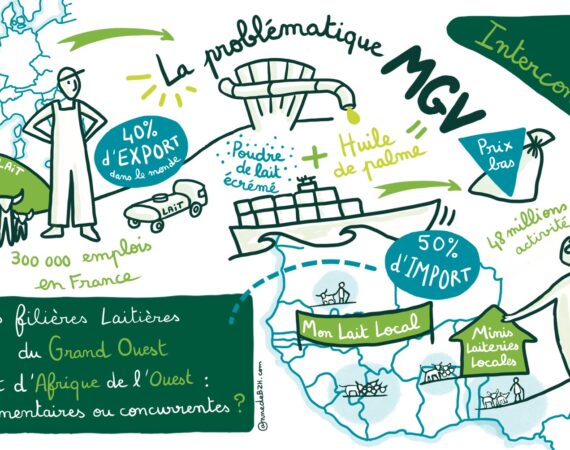 La problématique
MGV
Intercon
40%
d'EXPORT
dans le monde
LAIT
LAIT
300 000 emplois
en France
Poudre
de lait
écrémé
+
Huile
de palme
=
Prix
bas
48 millions
activité
50%
d'IMPORT
Mon Lait Local
Minis
Laiteries
Locales
filières Laitières
du Grand Ouest
d'Afrique de l'Ouest :
mentaires ou concurrentes ?